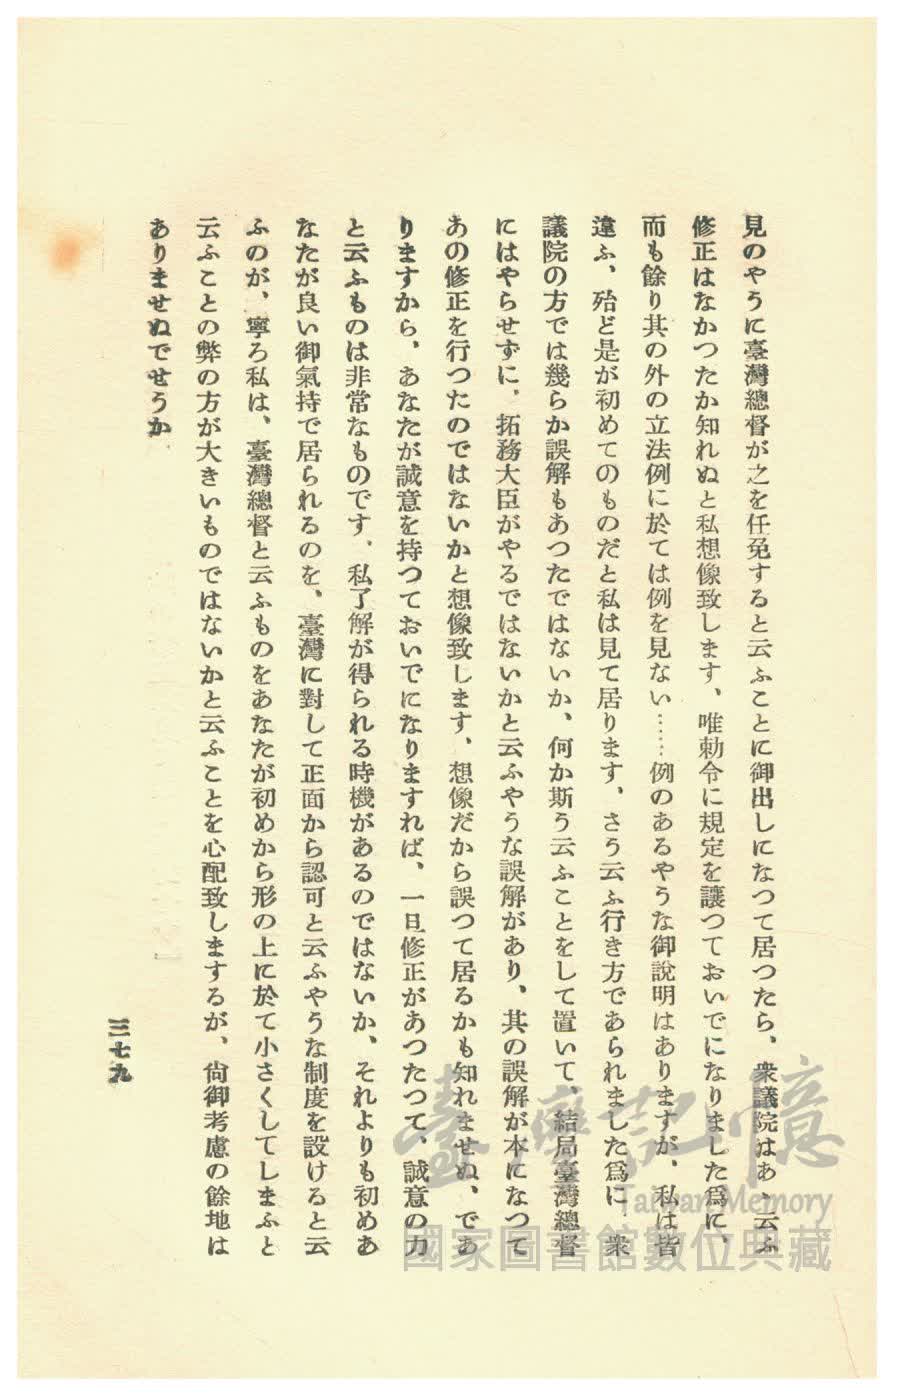 見のやうに臺灣總督が之を任免すると云ふことに御出しになつて居つたら、衆議院はあゝ云ふ
修正はなかつたか知れぬと私想像致します、唯勅令に規定を讓つておいでになりました爲に、
而も餘り其の外の立法例に於ては例を見ない……例のあるやうな御說明はありますが、私は皆
違ふ、殆ど是が初めてのものだと私は見て居ります、さう云ふ行き方であられました爲に、衆
議院の方では幾らか誤解もあつたではないか、何か斯う云ふことをして置いて、結局臺灣總督
にはやらせずに、拓務大臣がやるではないかと云ふやうな誤解があり、其の誤解が本になつて
あの修正を行つたのではないかと想像致します、想像だから誤つて居るかも知れませぬ、であ
りますから、あなたが誠意を持つておいでになりますれば、一旦修正があつたつて、誠意の力
と云ふものは非常なものです、私了解が得られる時機があるのではないか、それよりも初めあ
なたが良い御氣持で居られるのを、臺灣に對して正面から認可と云ふやうな制度を設けると云
ふのが、寧ろ私は、臺灣總督と云ふものをあなたが初めから形の上に於て小さくしてしまふと
云ふことの弊の方が大きいものではないかと云ふことを心配致しまするが、尙御考慮の餘地は
ありませぬでせうか
三七九
臺灣記憶
Taiwan Memory
國家圖書館數位典藏